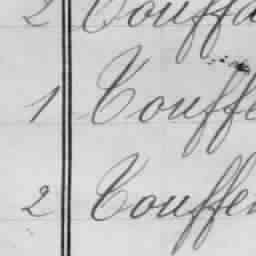 2 Touffa
1 Touffe
2 Touffer